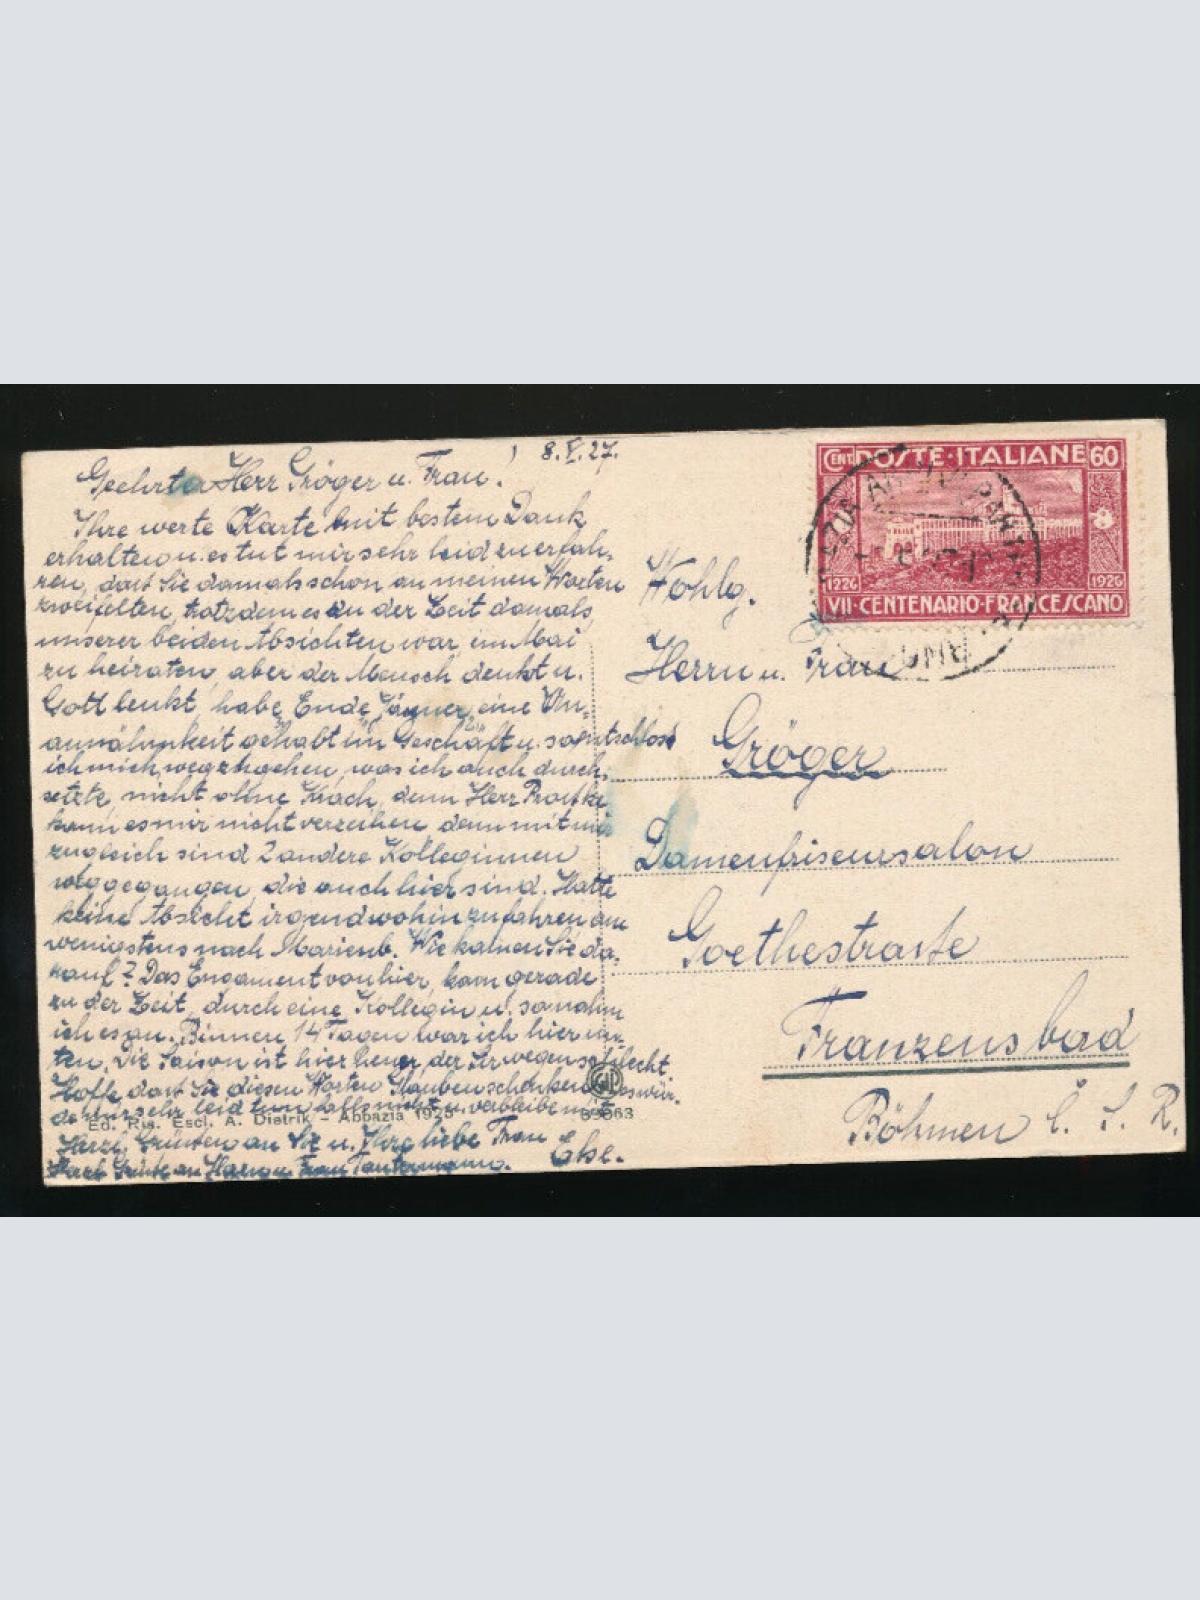 8.V.27.
Geehrter Herr Gröger u. Frau!
Ihre werte Karte mit bestem Dank
erhalten u. es tut mir sehr leid zu erfah-
ren, dass Sie damals schon an meinen Worten
zweifelten, trotzdem es zu der Zeit damals
unserer beiden Absichten war, im Mai
zu heiraten, aber der Mensch denkt u.
Gott lenkt, habe Ende Jänner, eine Un-
annähmkeit gehabt im Geschäft u. so entschloss
ich mich, wegzugehen, was ich auch durch-
setzte, nicht ohne Krach, denn Herr
kann es mir nicht verzeihen, denn mit mir
zugleich sind 2 andere Kolleginnen
weggegangen, die auch hier sind. Hatte
keine Absicht irgendwohin zu fahren am
wenigsten nach Marienb. Wie kamen Sie da-
rauf? Das Engament von hier, kam gerade
zu der Zeit, durch eine Kollegin u. so nahm
ich es an. Binnen 14 Tagen war ich hier un-
ten. Die Saison ist hier heuer, der wegen schlecht.
Hoffe, dass Sie diesen Worten Glauben schenken, es wür-
de mir sehr leid tun falls nicht u. verbleibe mit
Herzl. Grüssen an Sie u. Ihre liebe Frau
Else.
Grüsse an Herrn u. Frau
Ed. Ris. Escl. A. Dietrik - Abbazia 1926
69063
CENT. POSTE·ITALIANE 60
1226 1926
VII·CENTENARIO·FRANCESCANO
Wohlg.
Herrn u. Frau
Gröger
Damenfriseursalon
Goethestrasse
Franzensbad
Böhmen Č. S. R.